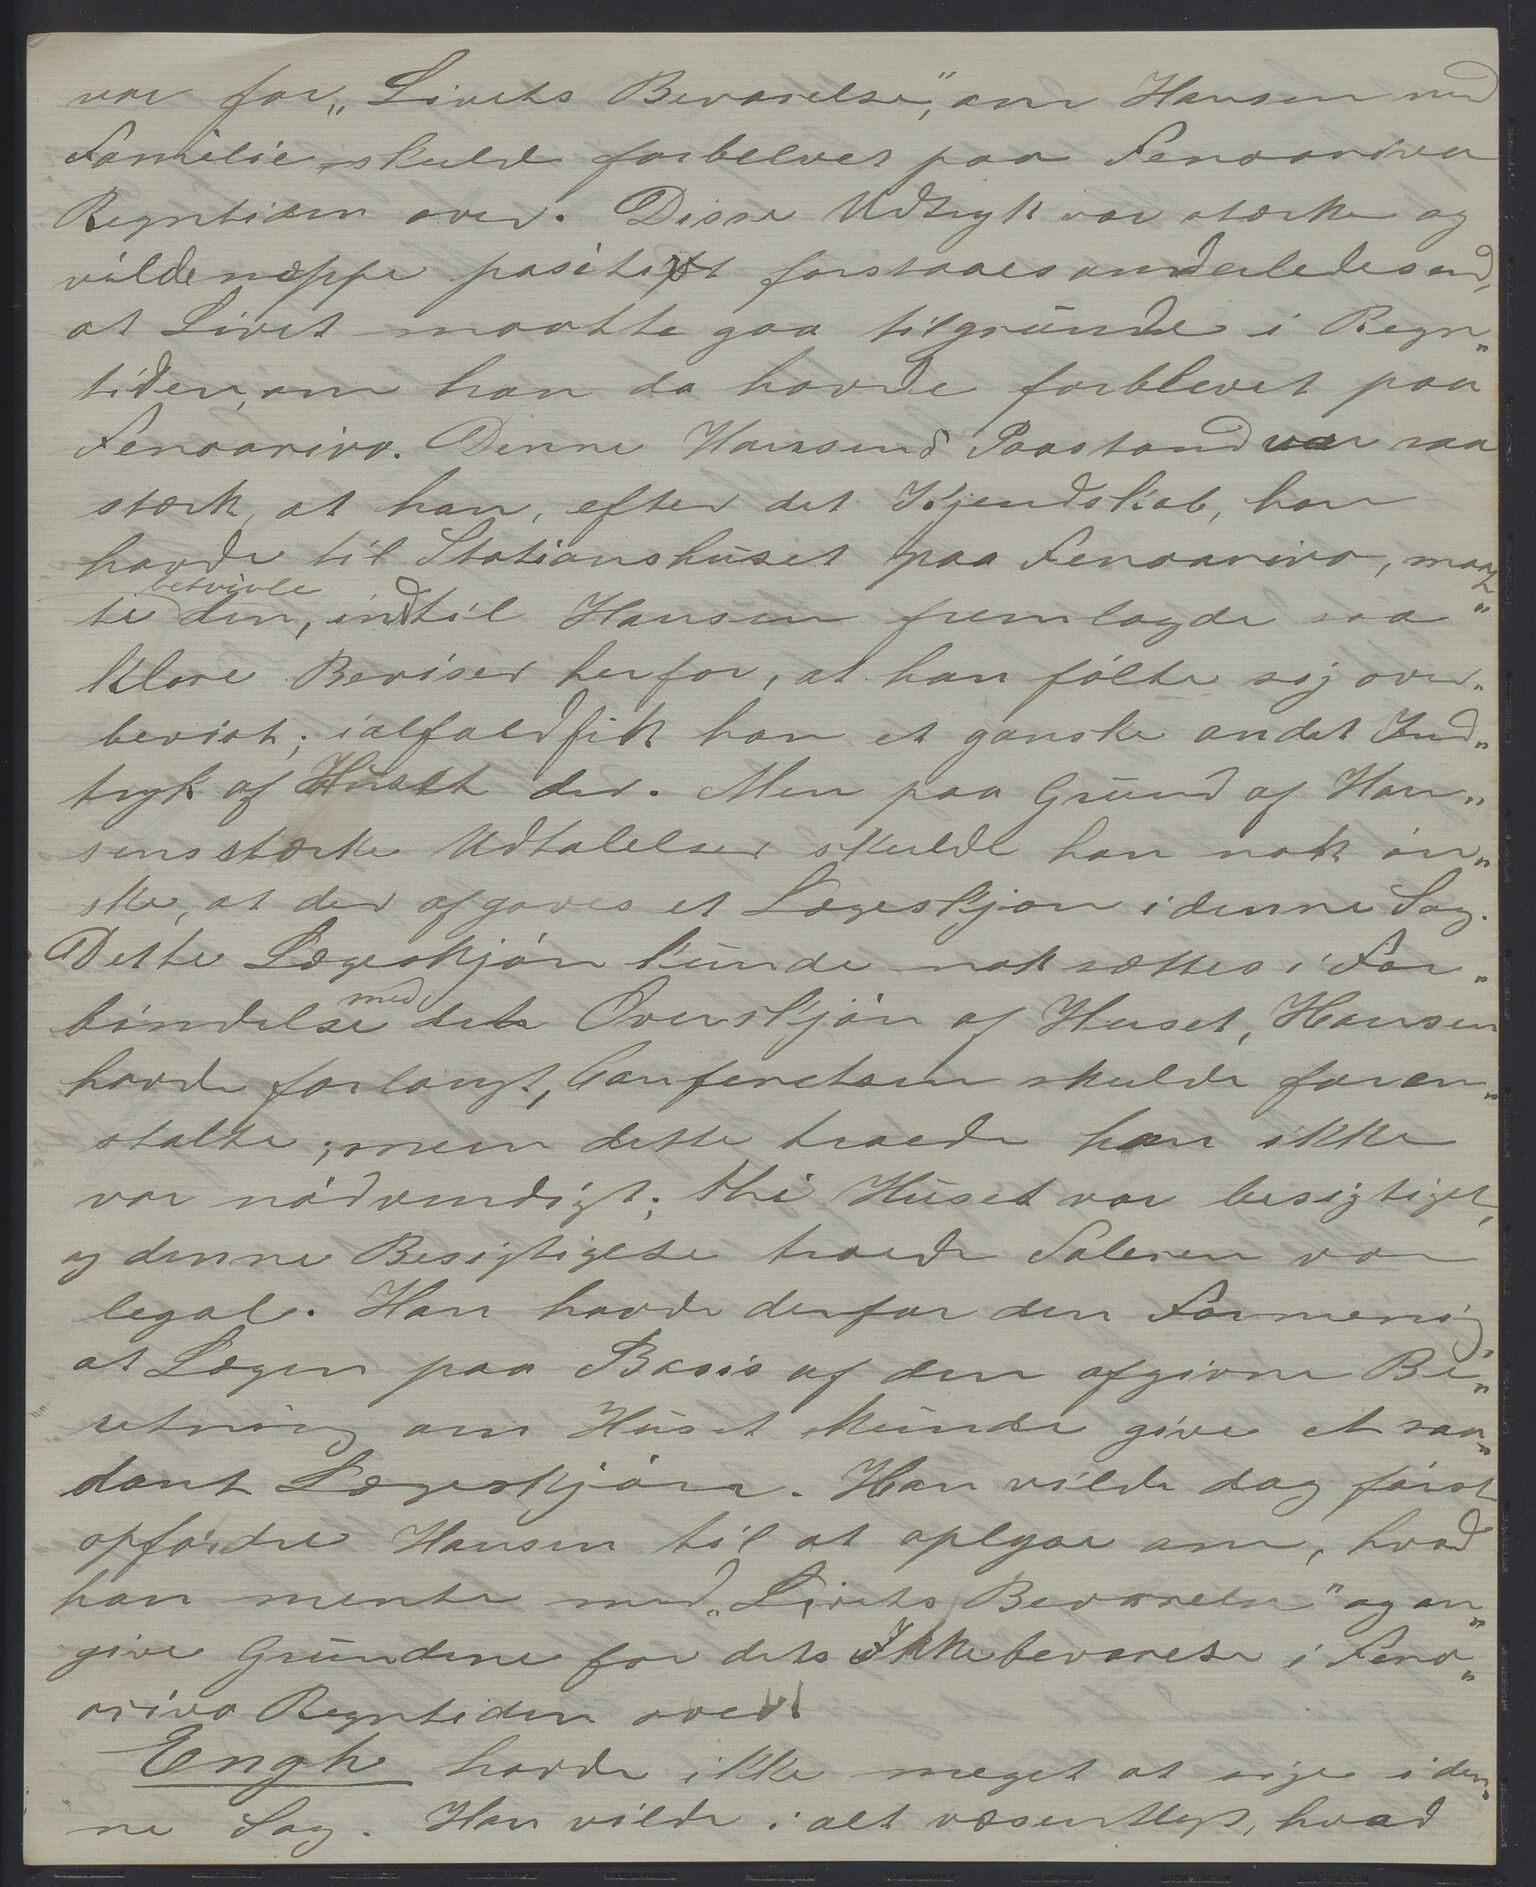 var for „Livets Bevarelse", om Hansen med
Familie skulde forbelvet paa Fenoarivo
Regntiden over. Disse Udtryk var stærke og
vilde næppe positivt forstaaes anderledes end,
at Livet maatte gaa tilgrunde i Regn„
tiden, om han da havde forblevet paa
Fenoarivo. Denne Hansens Paastand var saa
stærk, at han, efter det Kjendskab, han
havde til Stationshuset paa Fenoarivo, maat„
te betvivle den, indtil Hansen fremlagde saa
klare Beviser herfor, at han følte sig over„
bevist; ialfald fik han et ganske andet Ind„
tryk af Huset der. Men paa Grund af Han„
sens stærke Udtalelser skulde han nok øn„
ske, at der afgaves et Lægeskjøn i denne Sag.
Dette Lægeskjøn kunde nok sættes i For„
bindelse med det Overskjøn af Huset, Hansen
havde forlangt, Conferentsen skulde foran„
stalte; men dette troede han ikke
var nødvendigt; thi Huset var besigtiget,
og denne Besigtigelse troede Taleren var
legal. Han havde derfor den Formening,
at Lægen paa Basis af den afgivne Be„
retning om Huset kunde give et saa„
dant Lægeskjøn. Han vilde dog først
opfordre Hansen til at oplyse om, hvad
han mente med „Livets Bevarelse" og an„
give Grundene for dets Ikkebevarelse i Feno„
arivo Regntiden over.
Engh havde ikke meget at sige i den„
ne Sag. Han vilde i alt væsentligt, hvad